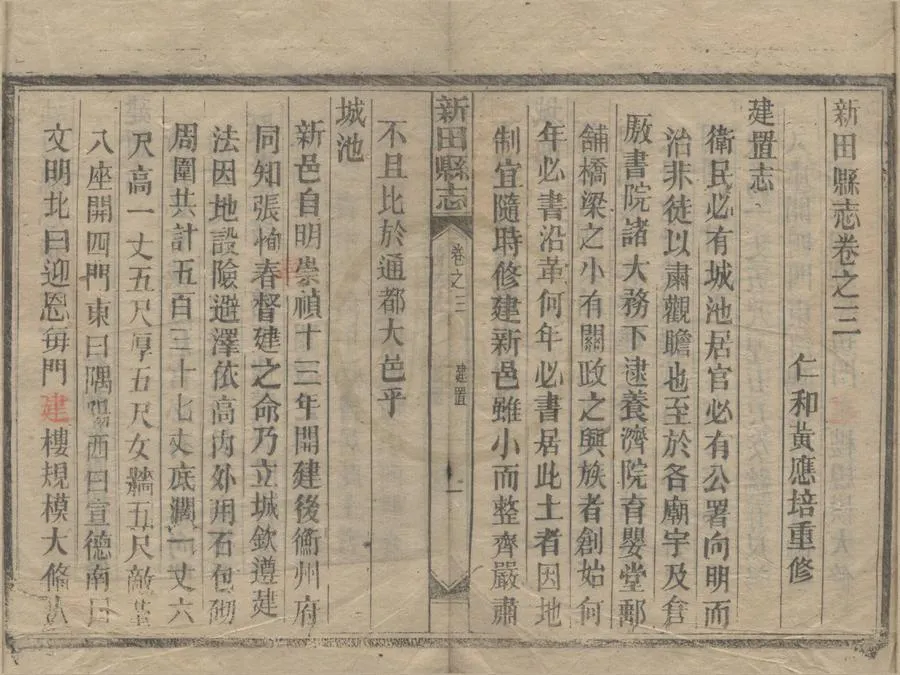 新田縣志卷之三
仁和黃應培重修
建置志
衛民必有城池居官必有公署向明而
治非徒以肅觀瞻也至於各廟宇及倉
厫書院諸大務下逮養濟院育嬰堂郵
舖橋梁之小有關政之興族者創始何
年必書沿革何年必書居此土者因地
制宜隨時修建新邑雖小而整齊嚴肅
新田縣志
卷之三
建置
一
不且比於通都大邑乎
城池
新邑自明崇禎十三年開建後衡州府
同知張恂春督建之命乃立城欽遵建
法因地設險避澤依高內外用石包砌
周圍共計五百三十七丈底濶一丈六
尺高一丈五尺厚五尺女牆五尺敵臺
八座開四門東曰隅陽西曰宣德南曰
文明北曰迎恩每門建樓規模大條